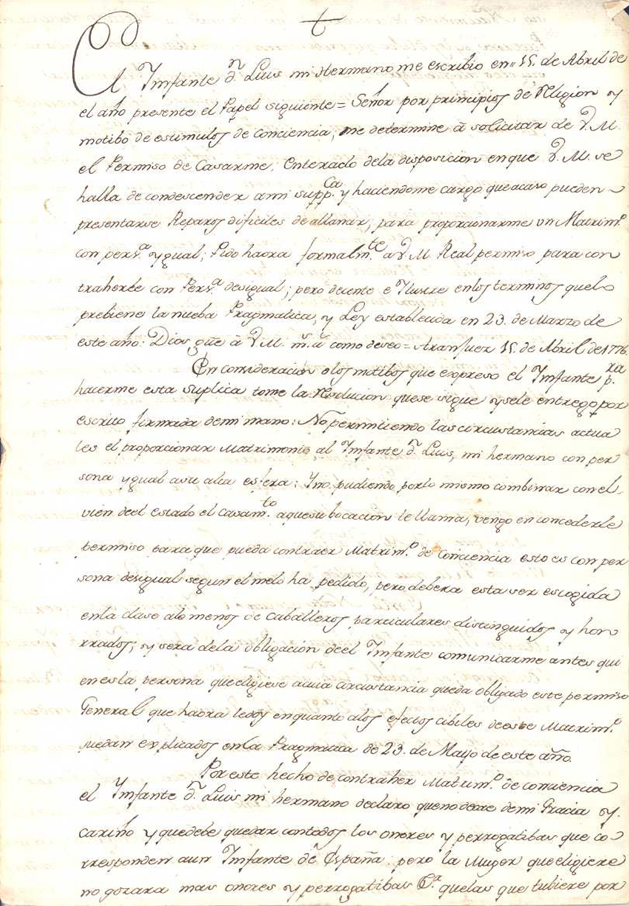 El Infante dn. Luis mi Hermano, me escribio en 15 de Abril de
el año presente el Papel siguiente = Señor por principios de Religion y
motibo de estimulos de conciencia, me determine à solicitar de V.M.
el Permiso de Casarme. Enterado dela disposicion en que V.M. se
halla de condescender ami suppca. y haciendome cargo que acaso pueden
presentarse Reparos dificiles de allanar, para proporcionarme un Matrimo.
con persa. ygual; Pido haora formalmte. a V.M. Real permiso para con
traherle con Persa. desigual; pero decente e Ylustre enlos terminos quelo
prebiene la nueba Pragmatica, y Ley establecida en 23. de Marzo de
este año. Dios gue. à V.M. ms. as. como deseo. Aranjuez 15. de Abril de 1776.
En consideracion alos motibos que expreso el Infante pa.
hacerme esta suplica tome la resolucion quese sigue ysele entregò por
escrito formada demi mano: No permitiendo las circustancias actua
les el proporcionar Matrimonio al Infante dn. Luis, mi hermano con per
sona ygual asu alta esfera: Yno pudiendo porlo mismo combinar con el
vien deel estado el Casamto. aquesu bocacion le llama, vengo en concederle
permiso para que pueda contraer Matrimo. de Conciencia esto es con per
sona desigual segun el melo ha pedido, pero debera esta ser escogida
enla clase alo menos de Caballeros particulares distinguidos y hon
rrados; y sera dela obligacion deel Infante comunicarme antes qui
en es la persona que eligiese a cuia circustancia queda obligado este permiso
General que haora ledoy en quanto alos efectos cibiles deeste Matrimo.
quedan explicados enla Pragmatica de 23. de Marzo de este año.
Por este hecho de contraher Matrimo. de conciencia
el Infante dn. Luis mi hermano declaro queno decae de mi Gracia y
cariño y quedebe quedar contodos los onores y perrogatibas que co-
rresponden aun Infante de España: pero la Muger que eligiere
no gozara mas onores y perrogatibas que las que tubiere por